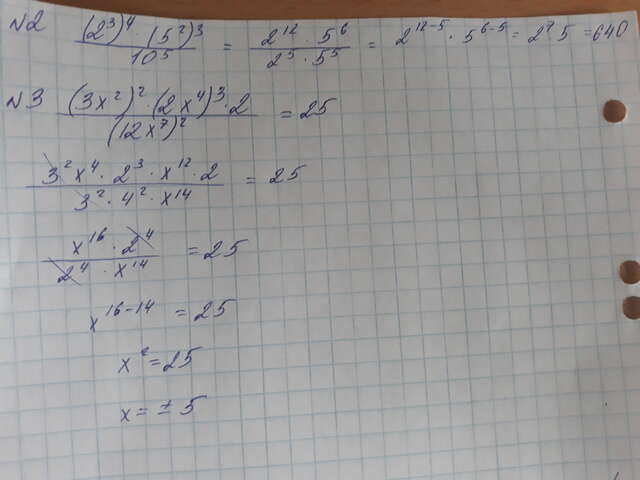 №2 \frac{(2^3)^4 · (5^2)^3}{10^5} = \frac{2^{12} · 5^6}{2^5 · 5^5} = 2^{12-5} · 5^{6-5} = 2^7 5 = 640
№3 \frac{(3x^2)^2 · (2x^4)^3 · 2}{(12x^7)^2} = 25
\frac{3^2 x^4 · 2^3 · x^{12} · 2}{3^2 · 4^2 · x^{14}} = 25
\frac{x^{16} · 2^4}{2^4 · x^{14}} = 25
x^{16-14} = 25
x^2 = 25
x = ± 5